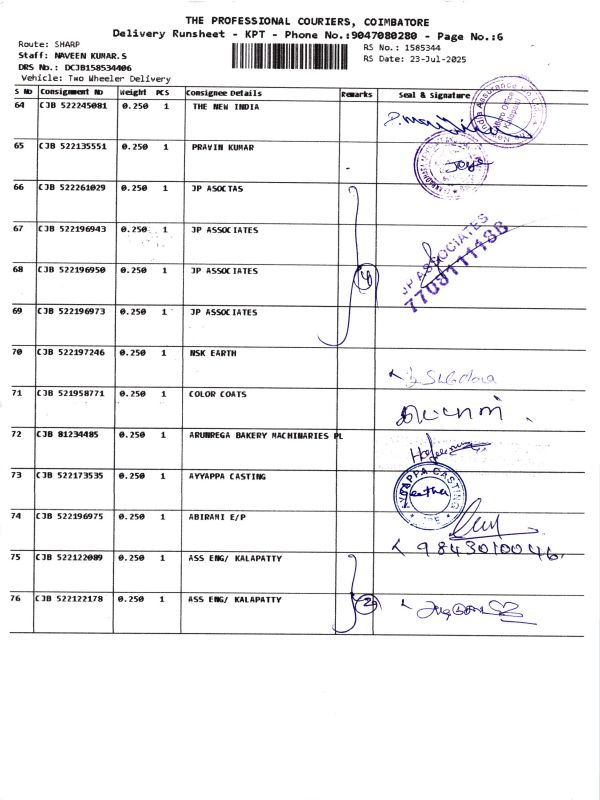 THE PROFESSIONAL COURIERS, COIMBATORE
Delivery Runsheet - KPT - Phone No.:9047080280 - Page No.:6
Route: SHARP
Staff: NAVEEN KUMAR.S
DRS No.: DCJB158534406
Vehicle: Two Wheeler Delivery
RS No.: 1585344
RS Date: 23-Jul-2025
S No Consignment No Weight PCS Consignee Details Remarks Seal & Signature
64 CJB 522245081 0.250 1 THE NEW INDIA
65 CJB 522135551 0.250 1 PRAVIN KUMAR
66 CJB 522261029 0.250 1 JP ASOCTAS
67 CJB 522196943 0.250 1 JP ASSOCIATES
JP ASSOCIATES
68 CJB 522196950 0.250 1 JP ASSOCIATES 4
69 CJB 522196973 0.250 1 JP ASSOCIATES
70 CJB 522197246 0.250 1 NSK EARTH
71 CJB 521958771 0.250 1 COLOR COATS
72 CJB 81234485 0.250 1 ARUNREGA BAKERY MACHINARIES PL
73 CJB 522173535 0.250 1 AYYAPPA CASTING
AYYAPPA CASTING
74 CJB 522196975 0.250 1 ABIRANI E/P
9843010046
75 CJB 522122089 0.250 1 ASS ENG/ KALAPATTY
76 CJB 522122178 0.250 1 ASS ENG/ KALAPATTY 2